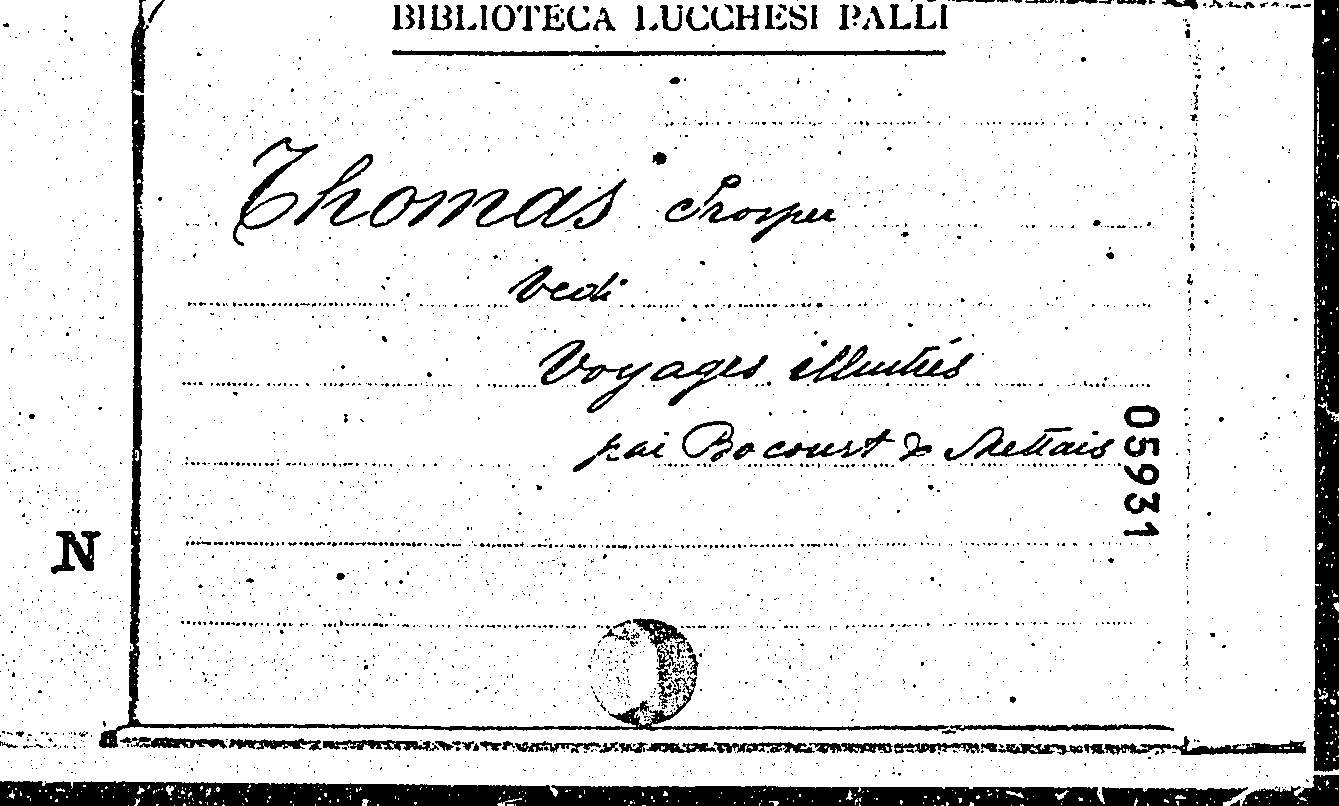 BIBLIOTECA LUCCHESI PALLI
Thomas Prosper
Vedi
Voyages illustrés
par Bocourt & Mettais
05931
N